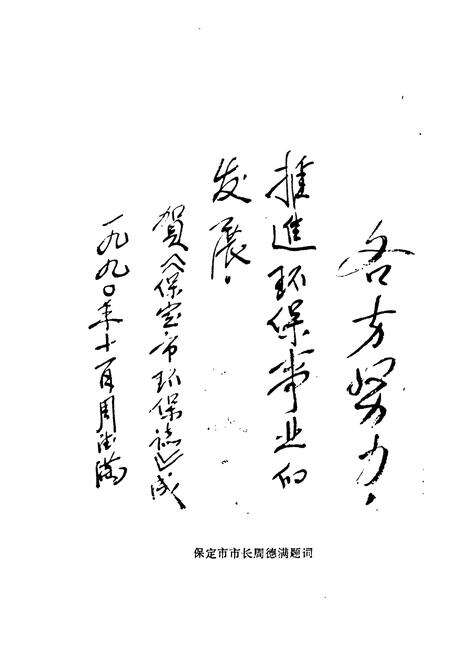 各方努力，
推進环保事业的
发展。
賀《保定市环保誌》成
一九九〇年十一月周德满
保定市市长周德满题词